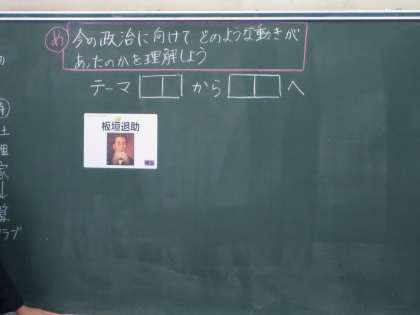 め 今の政治に向けてどのような動きが
あったのかを理解しよう
テーマ から へ
板垣退助
土
理
家
↓
算
クラブ